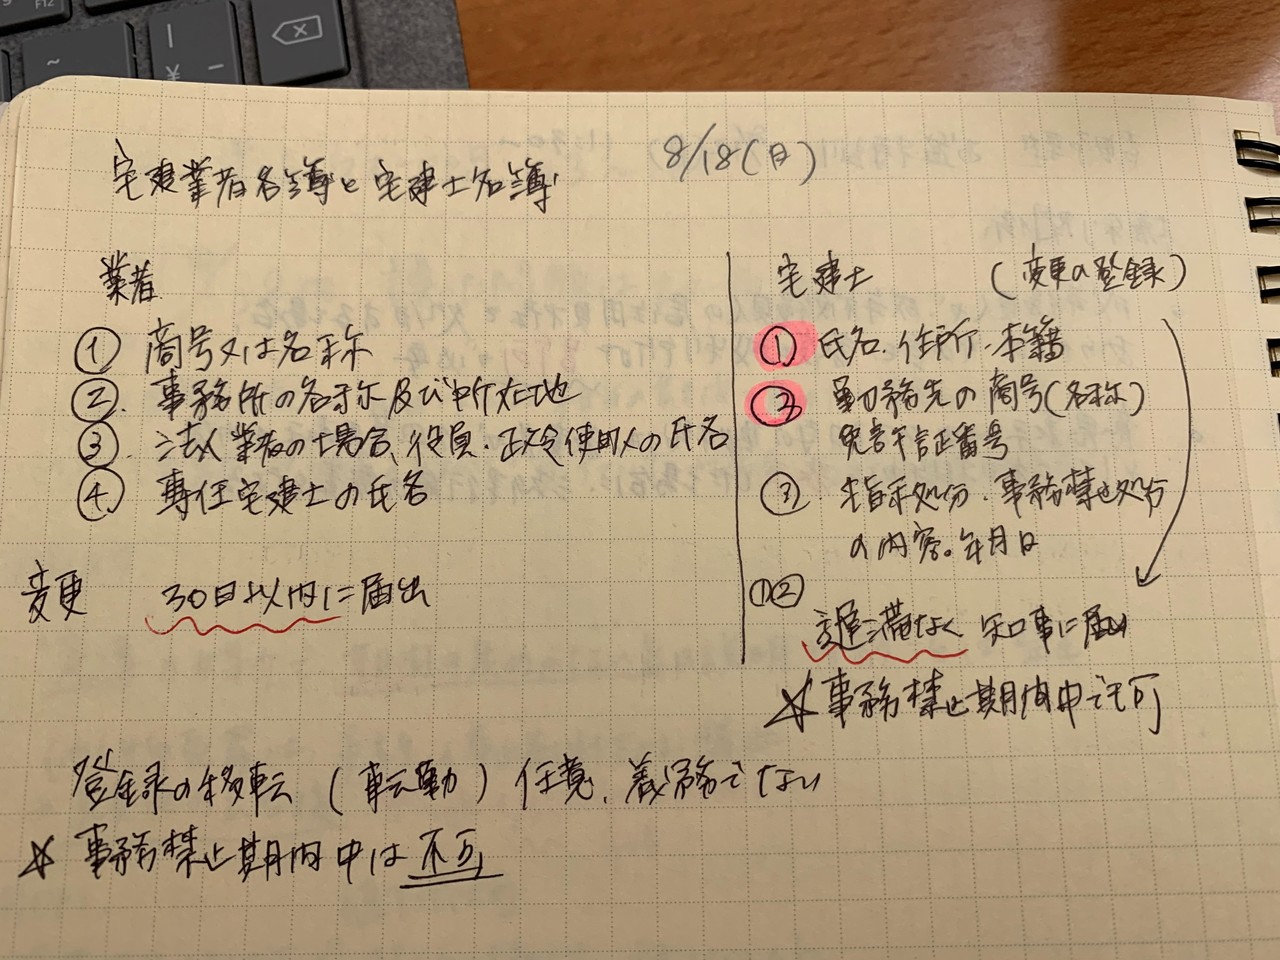 宅建業者名簿と宅建士名簿
8/18(日)
業者
① 商号又は名称
②. 事務所の名称及び所在地
③. 法人業者の場合、役員・政令使用人の氏名
④ 専任宅建士の氏名
変更 30日以内に届出
宅建士 (変更の登録)
① 氏名、住所・本籍
② 勤務先の商号(名称)
免許証番号
③. 指示処分・事務禁止処分
の内容。年月日
①②
遅滞なく 知事に届出
☆事務禁止期間中も可
登録の移転 (転勤) 任意、義務でない
☆ 事務禁止期間中は不可